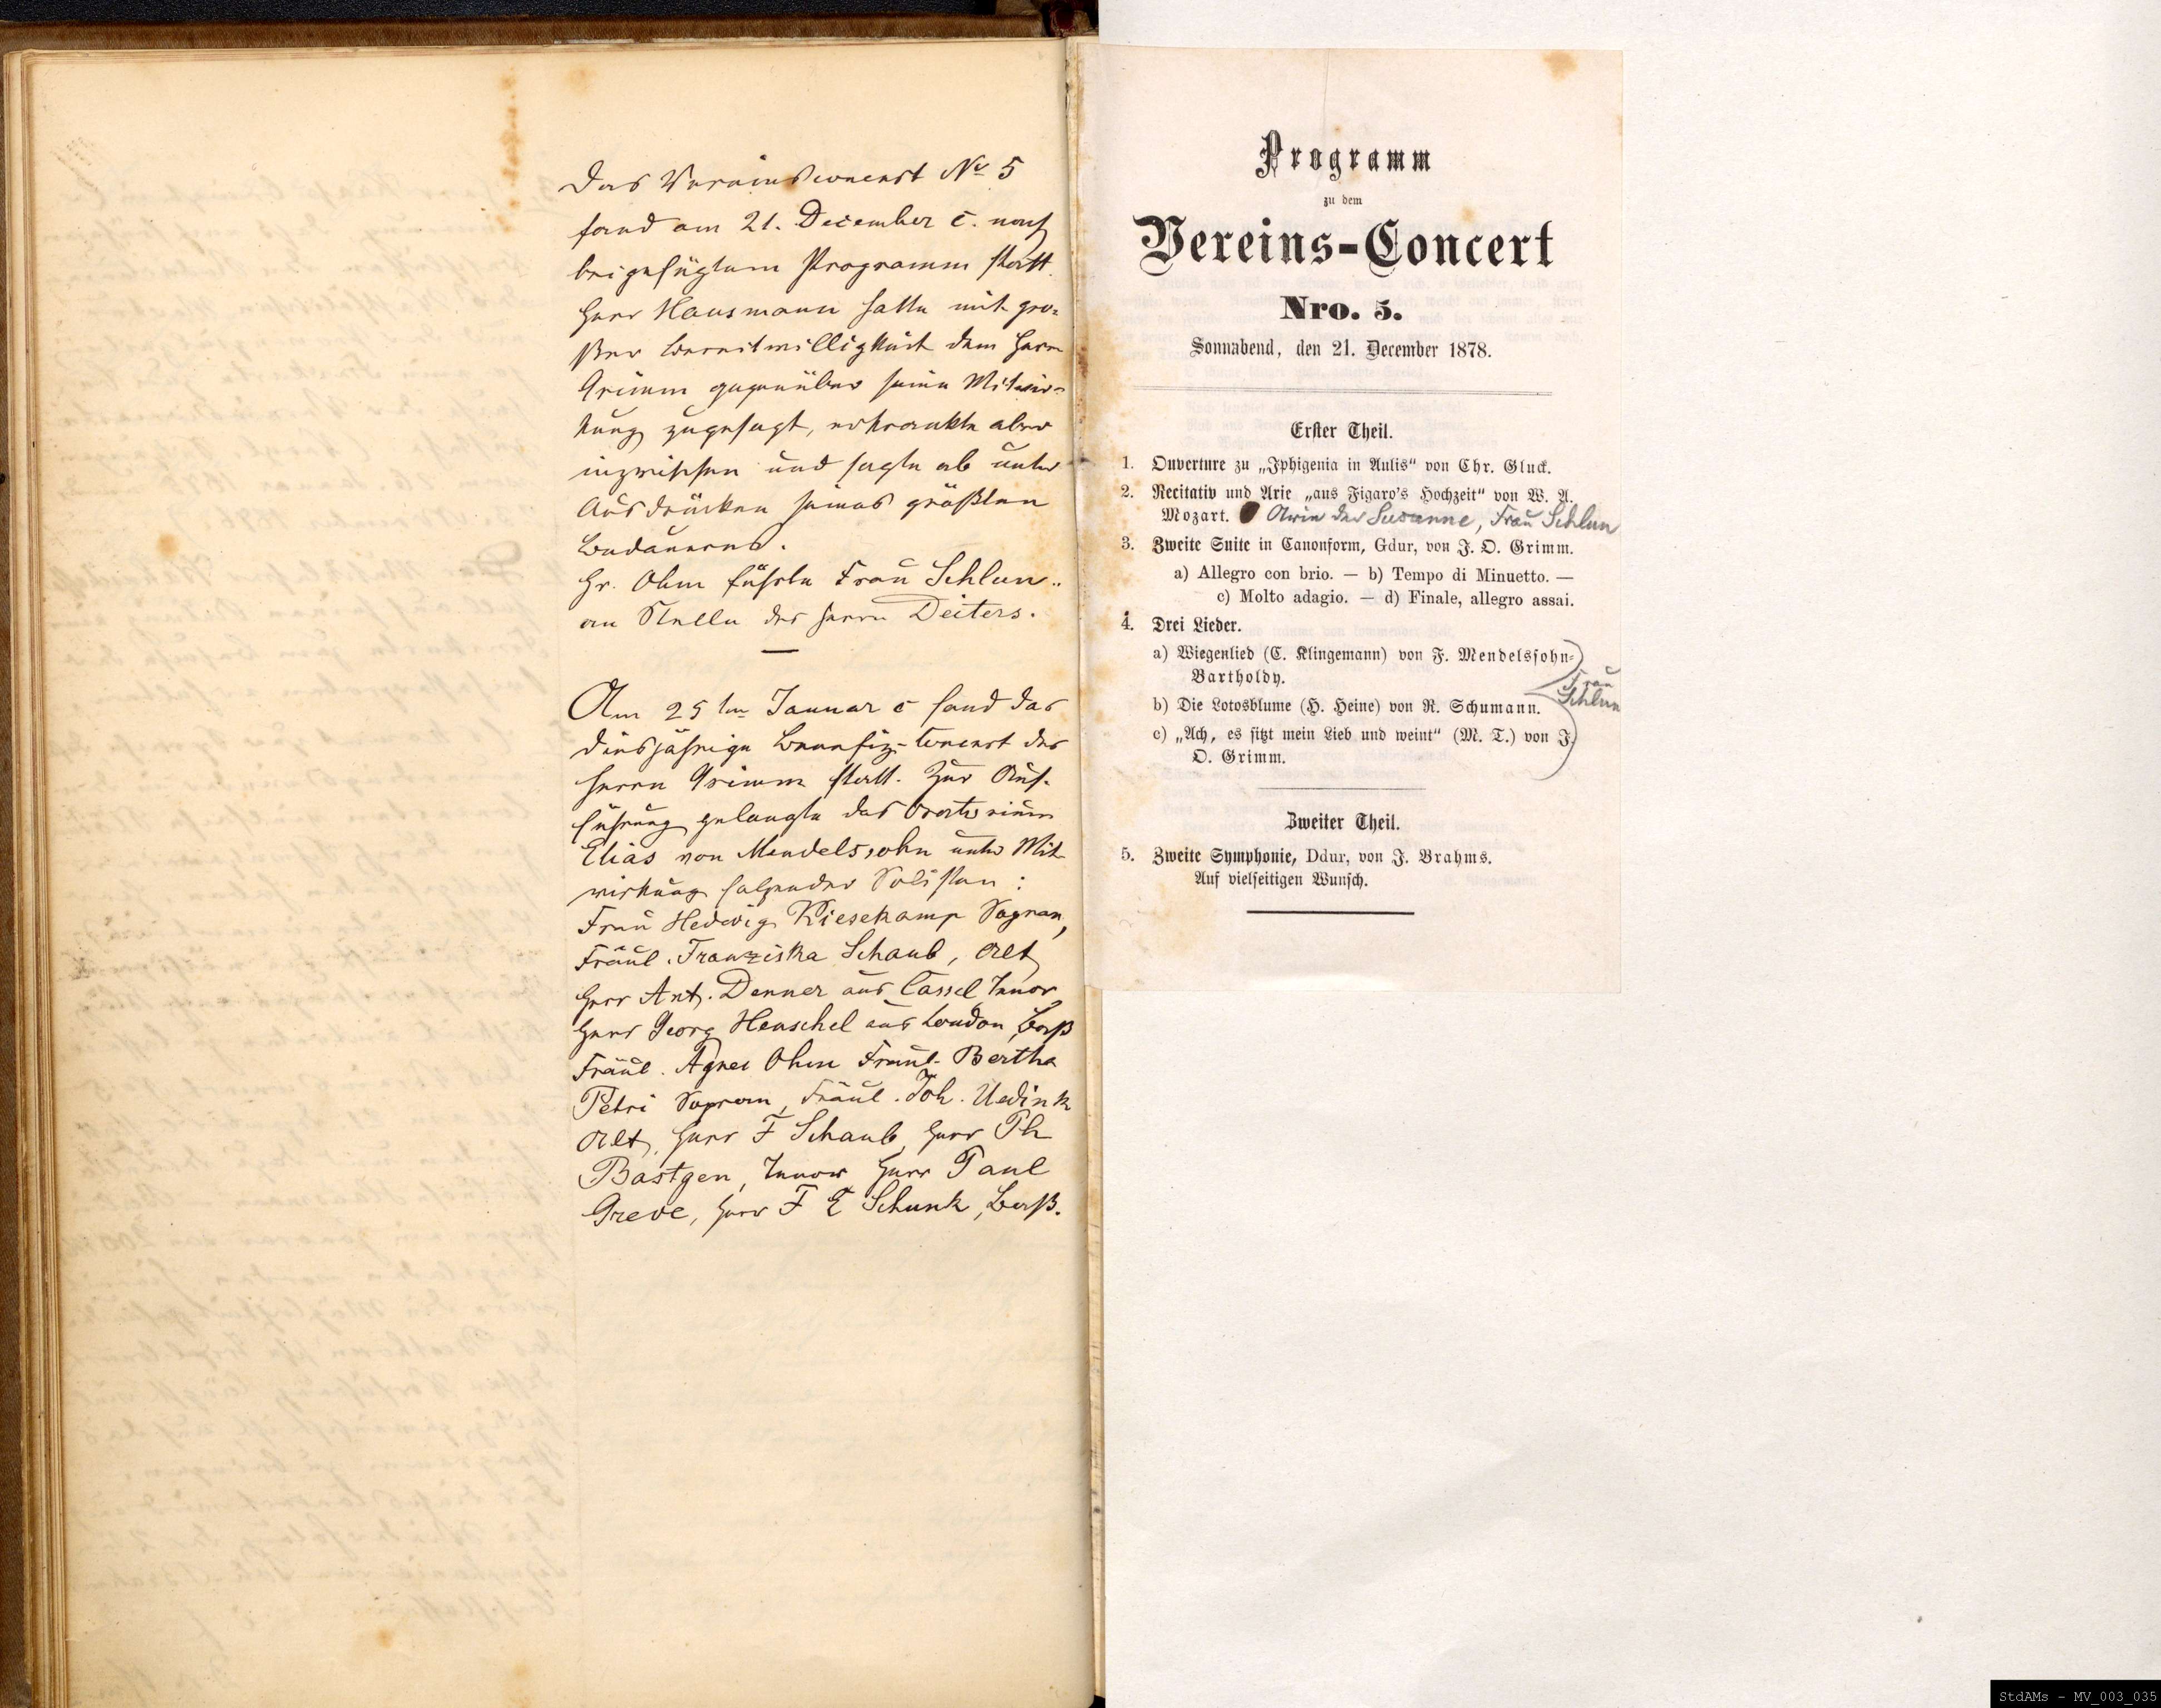 Das Vereinsconcert No 5
fand am 21. December c. nach
beigefügtem Programm statt.
Herr Hausmann hatte mit gro-
ßer Bereitwilligkeit dem Herrn
Grimm gegenüber seine Mitwir-
kung zugesagt, erkrankte aber
inzwischen und sagte ab unter
Ausdrücken seines größten
Bedauerns.
Hr. Ohm führte Frau Schlun..
an Stelle des Herrn Deiters.
Am 25ten Januar c fand das
diesjährige Benefiz-Concert des
Herrn Grimm statt. Zur Auf-
führung gelangte das Oratorium
Elias von Mendelssohn unter Mit-
wirkung folgender Solisten:
Frau Hedwig Kiesekamp Sopran,
Fräul. Franziska Schaub, Alt,
Herr Ant. Denner aus Cassel Tenor
Herr Georg Henschel aus London, Baß
Fräul. Agnes Ohm Fräul. Bertha
Petri Sopran, Fräul. Joh. Uedink
Alt, Herr F Schaub, Herr Th
Bastgen, Tenor Herr Paul
Greve, Herr F E Schunk, Baß.
Programm
zu dem
Vereins-Concert
Nro. 5.
Sonnabend, den 21. December 1878.
Erster Theil.
1. Ouverture zu „Iphigenia in Aulis" von Chr. Gluck.
2. Recitativ und Arie „aus Figaro's Hochzeit" von W. A.
Mozart. Arie der Susanne, Frau Schlun
3. Zweite Suite in Canonform, Gdur, von J. O. Grimm.
a) Allegro con brio. — b) Tempo di Minuetto. —
c) Molto adagio. — d) Finale, allegro assai.
4. Drei Lieder.
a) Wiegenlied (C. Klingemann) von F. Mendelssohn-
Bartholdy.
Frau
Schlun
b) Die Lotosblume (H. Heine) von R. Schumann.
c) „Ach, es sitzt mein Lieb und weint" (M. T.) von J.
O. Grimm.
Zweiter Theil.
5. Zweite Symphonie, Ddur, von J. Brahms.
Auf vielseitigen Wunsch.
StdAMs - MV_003_035